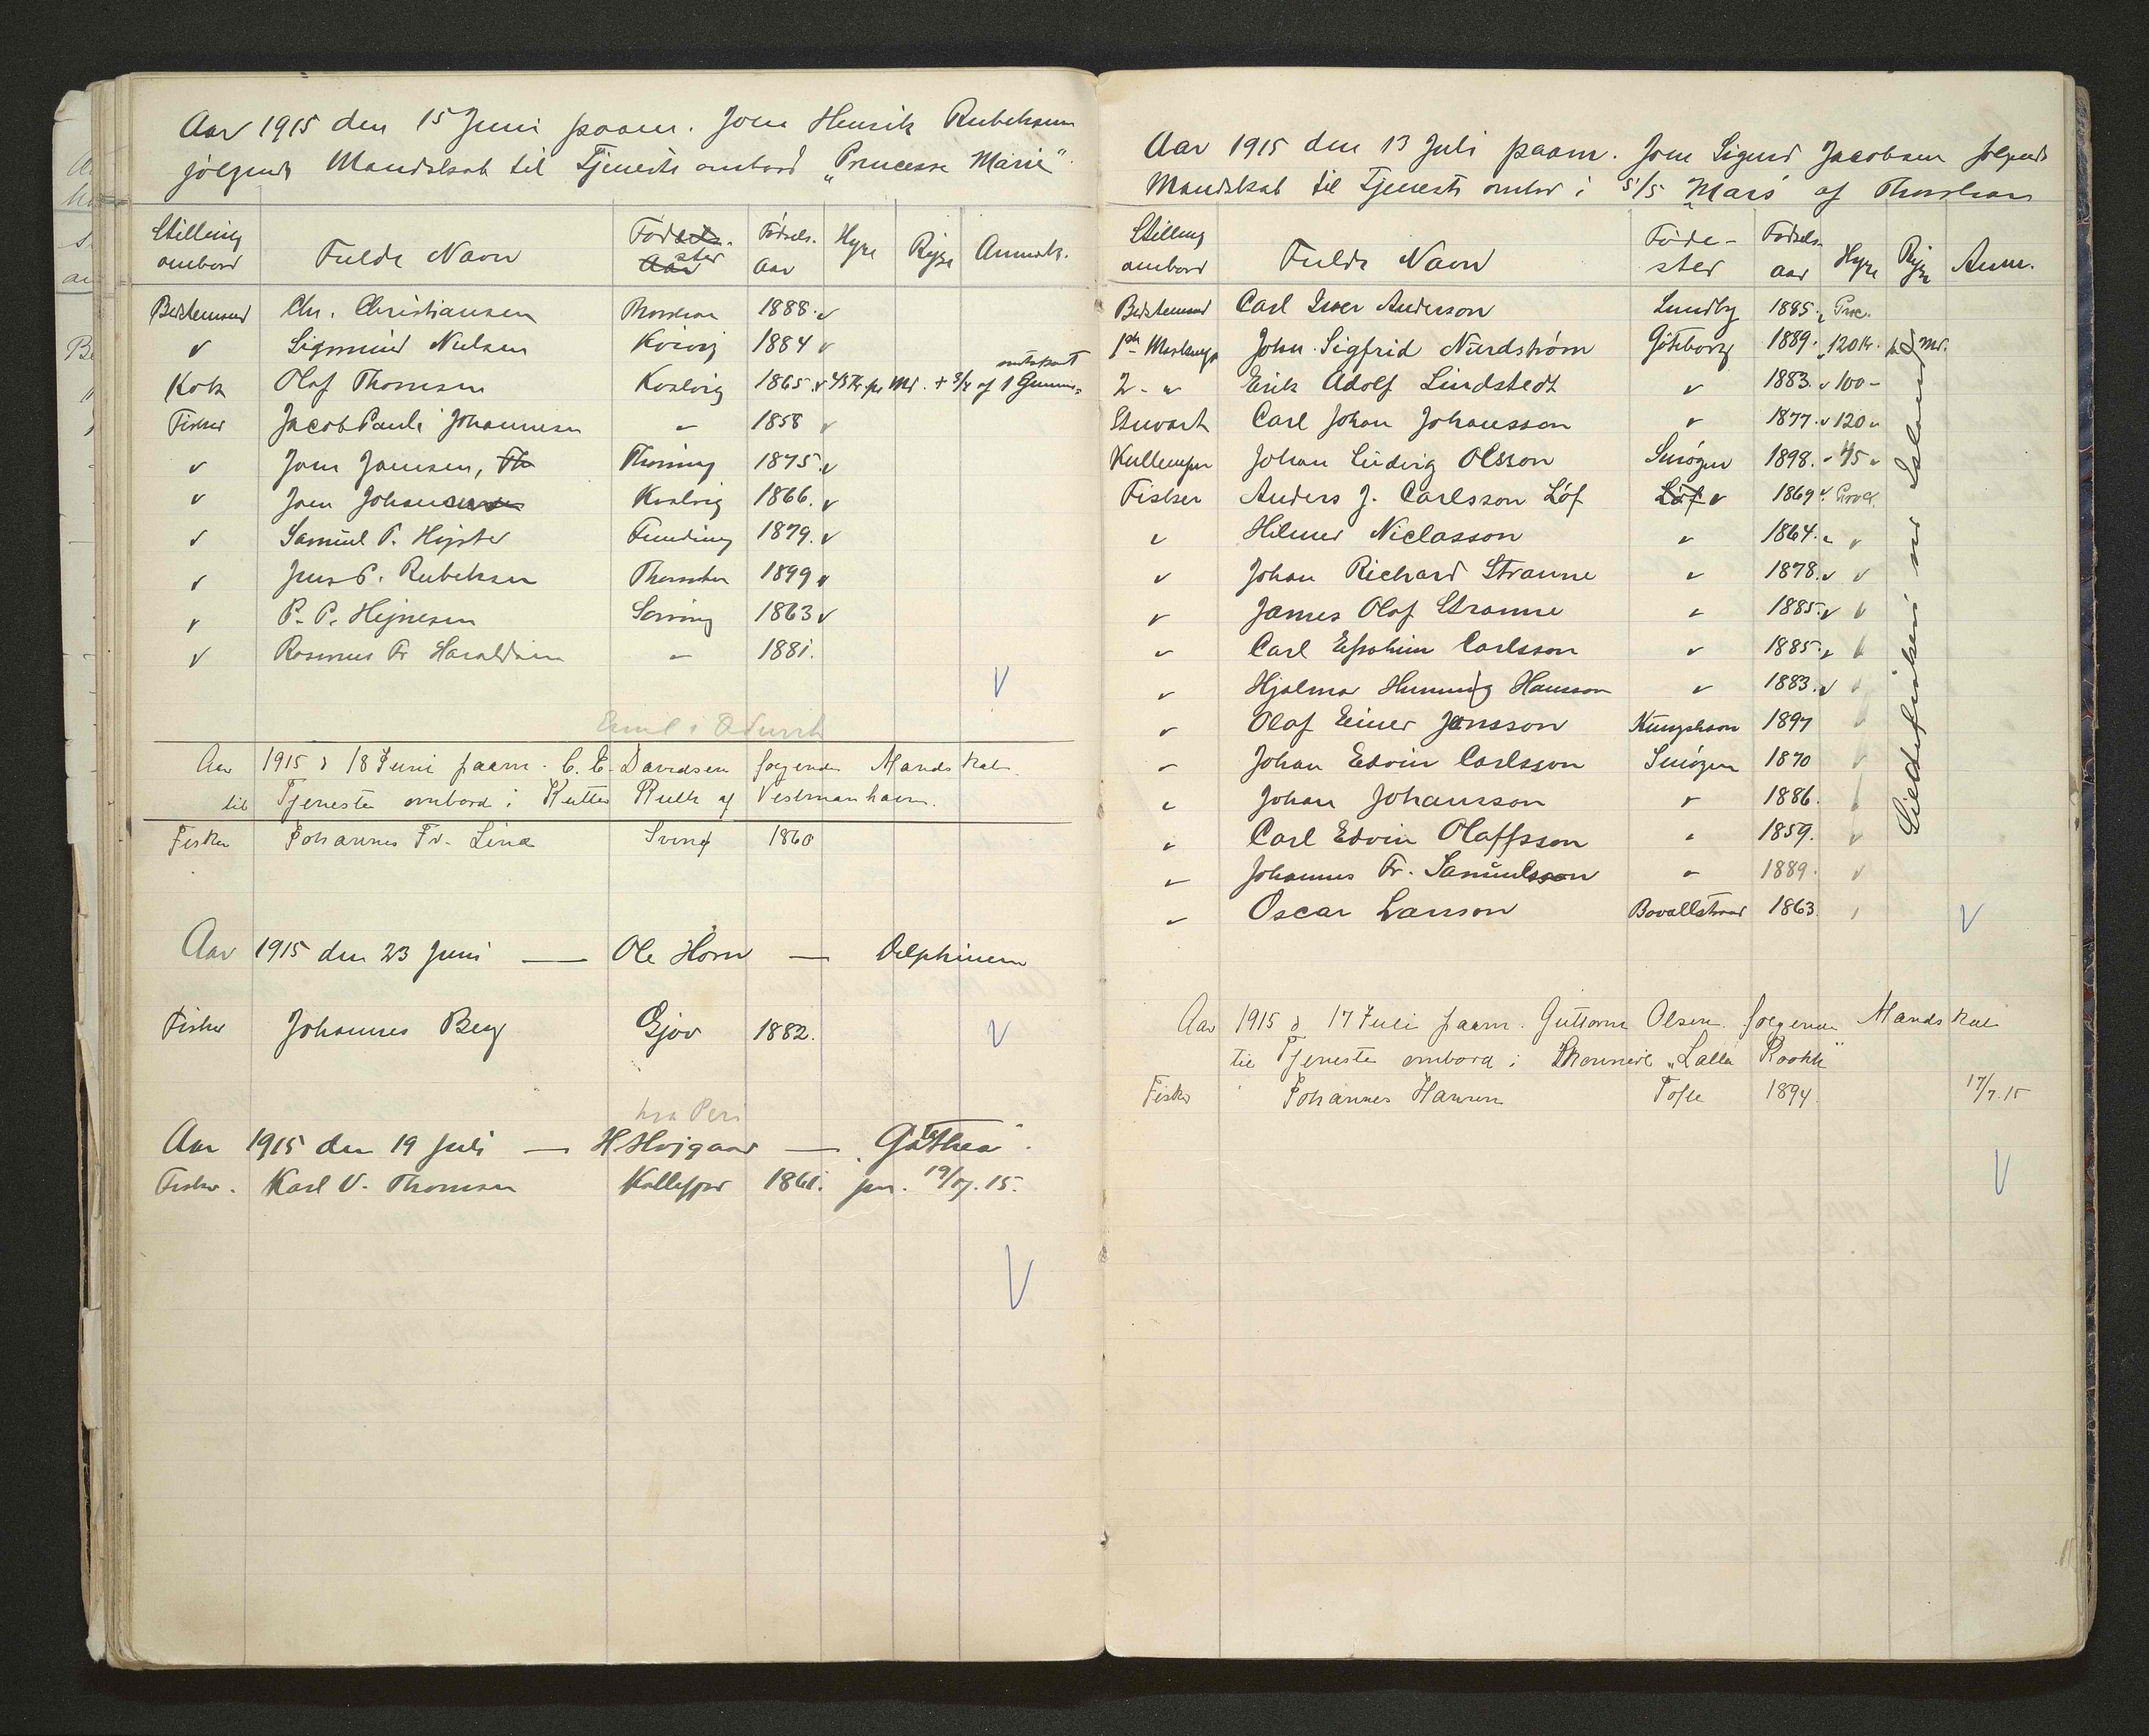 Aar 1915 den 15 Juni paam. Joen Henrik Rubeksen
følgende Mandskab til Tjeneste ombord „Princesse Marie”.
Stilling ombord Fulde Navn Fødested Fødsels-Aar Hyre Rejse Anmærk.
Bedstemand Chr. Christiansen Thorshavn 1888. "
" Sigmund Nielsen Kvivig 1884 "
Kok Olaf Thomsen Kvalvig 1865. " 45 Kr. pr Md. + 3/4 af 1
Fisker Jacob Pauli Johannesen " 1858 "
" Joen Joensen, 1875. "
" Joen Kvalvig 1866. "
" Samuel P. Funding 1879. "
" Jens P. Rubeksen Thorshavn 1899 "
" P. P. Hejnesen 1863 "
" Rasmus Fr. Haraldsen " 1881.
Aar 1915 d 18 Juni paam. C. E. Davidsen følgende Mandskab
til Tjeneste ombord i Kutter Ruth af Vestmanhavn.
Fisker Johannes Fr. Lind Svinø 1860
Aar 1915 den 23 Juni — Ole Horn — Delphinen
Fisker Johannes Berg Gjov 1882.
Aar 1915 den 19 Juli — H. Hojgaar — „Galathea”.
Fisker. Karl V. Thomsen Kollefjor 1861. 19/7. 15.
Aar 1915 den 13 Juli paam. Joen Sigurd Jacobsen følgende
Mandskab til Tjeneste ombor i S/S „Mars” af Thorshavn
Stilling ombord Fulde Navn Føde-sted Fødsels-aar Hyre Rejse Anm.
Bedstemand Carl Iver Anderson Lundby 1885. " Proc.
1ste John Sigfrid Nordstrøm Göteborg 1889. " 120 Kr. pd Md.
2 - " Erik Adolf Lindstedt " 1883. " 100 -
Stuvart Carl Johan Johansson " 1877. " 120 "
Johan Ludvig Olsson Smögen 1898. " 45 "
Fisker Anders J. Carlsson Löf Löf " 1869 " Proc.
" Hilmer Niclasson " 1864. " "
" Johan Richard Stranne " 1878. " "
" James Olof Stranne " 1885. " "
" Carl Efrahim Carlsson " 1885. " "
" Hjalmar Henning Hansson " 1883. " "
" Olof Einer Jansson Kungshavn 1897 "
" Johan Edvin Carlsson Smögen 1870 "
" Johan Johansson " 1886. "
" Carl Edvin Olaffsson " 1859. "
" Johannes Fr. Samuelsson " 1889. "
" Oscar Larsson Bovallstrand 1863. "
Sildefiskeri ved Island
Aar 1915 d 17 Juli paam. Guttorm Olsen følgende Mandskab
til Tjeneste ombord i „Lalla Rookh”
Fisker Johannes Hansen Tofte 1894. 17/7. 15